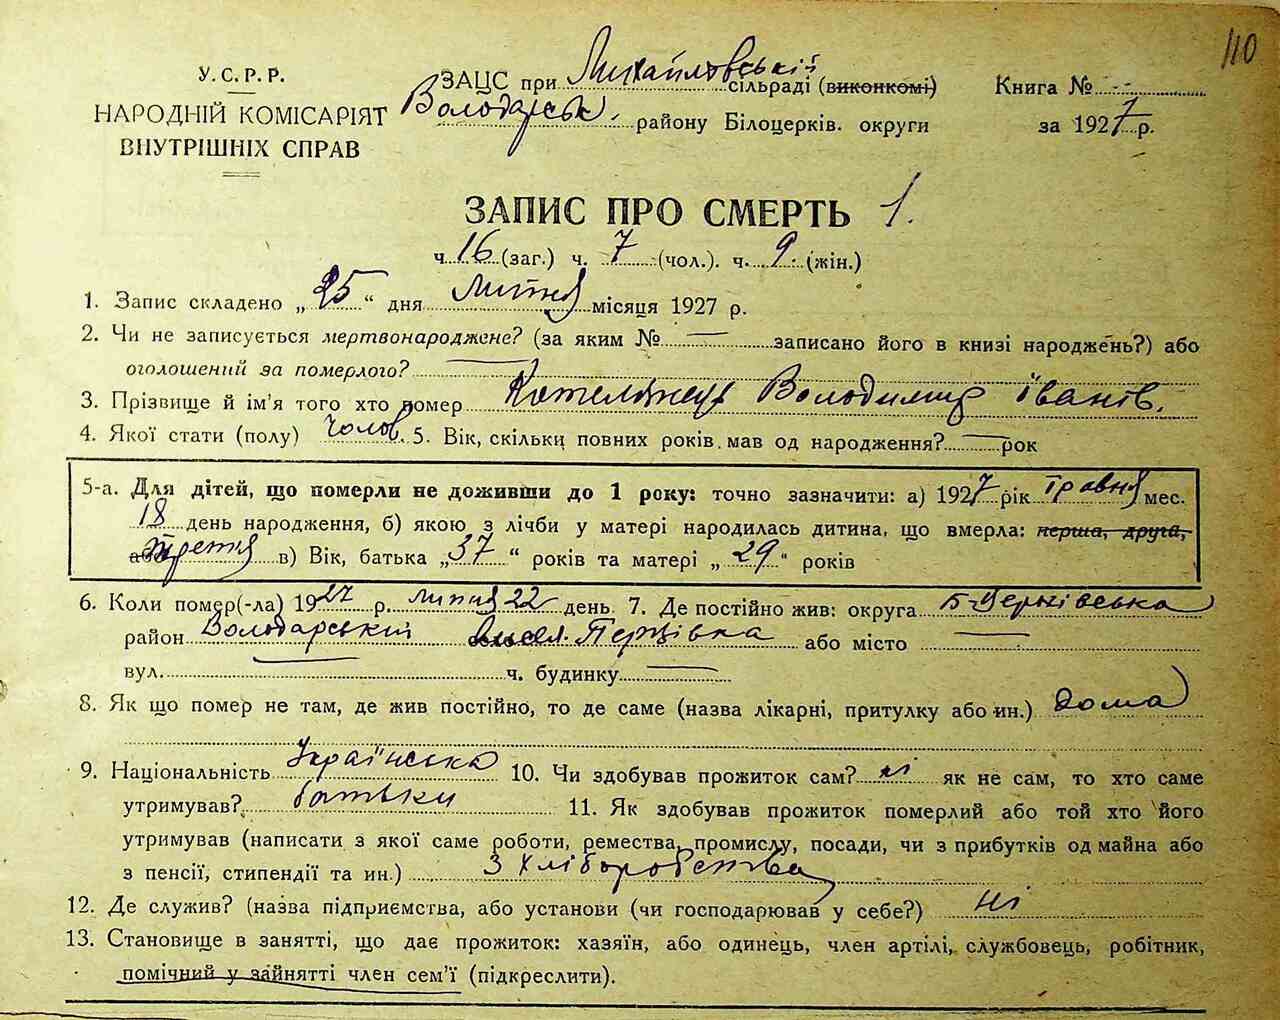 110
У.С.Р.Р.
НАРОДНІЙ КОМІСАРІЯТ
ВНУТРІШНІХ СПРАВ
ЗАЦС при Михайловській сільраді (виконкомі)
Володарськ. району Білоцерків. округи
Книга № -
за 1927 р.
ЗАПИС ПРО СМЕРТЬ 1.
ч. 16 (заг.) ч. 7 (чол.). ч. 9 (жін.)
1. Запис складено „25“ дня липня місяця 1927 р.
2. Чи не записується мертвонароджене? (за яким № — записано його в книзі народжень?) або
оголошений за померлого? —
3. Прізвище й ім'я того хто помер Володимир Іванів.
4. Якої стати (полу) чолов. 5. Вік, скільки повних років мав од народження? — рок
5-а. Для дітей, що померли не доживши до 1 року: точно зазначити: а) 1927 рік травня мес.
18 день народження, б) якою з лічби у матері народилась дитина, що вмерла: перша, друга,
або третя в) Вік, батька „37“ років та матері „29“ років
6. Коли помер(-ла) 1927 р. липня 22 день. 7. Де постійно жив: округа Б-Церківська
район Володарський сел. Перцівка або місто —
вул. — ч. будинку —
8. Як що помер не там, де жив постійно, то де саме (назва лікарні, притулку або ин.) дома
9. Національність Українська 10. Чи здобував прожиток сам? ні як не сам, то хто саме
утримував? батьки 11. Як здобував прожиток померлий або той хто його
утримував (написати з якої саме роботи, ремества, промислу, посади, чи з прибутків од майна або
з пенсії, стипендії та ин.) З хліборобства
12. Де служив? (назва підприємства, або установи (чи господарював у себе?) ні
13. Становище в занятті, що дає прожиток: хазяїн, або одинець, член артілі, службовець, робітник,
помічний у зайнятті член сем'ї (підкреслити).